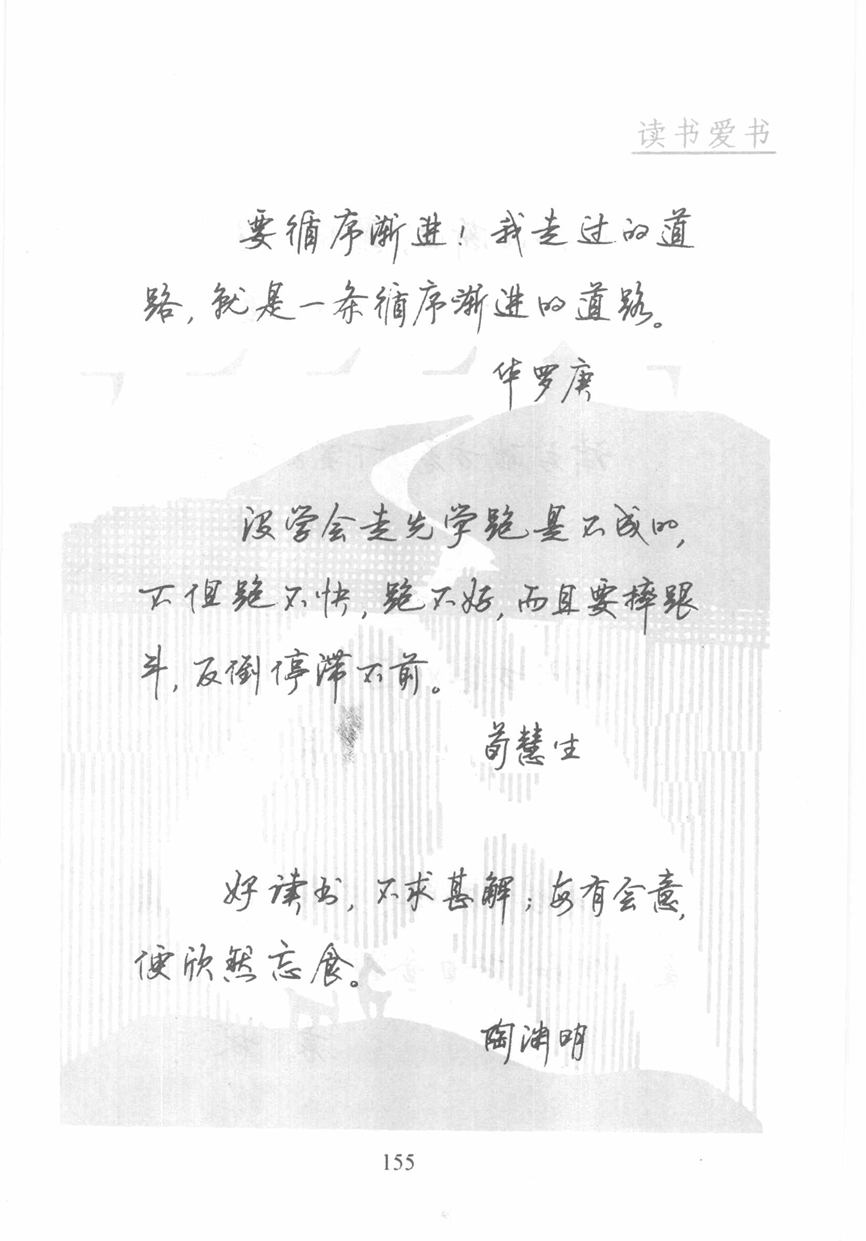 读书爱书
要循序渐进！我走过的道
路，就是一条循序渐进的道路。
华罗庚
没学会走先学跑是不成的，
不但跑不快，跑不好，而且要摔跟
斗，反倒停滞不前。
荀慧生
好读书，不求甚解；每有会意，
便欣然忘食。
陶渊明
155